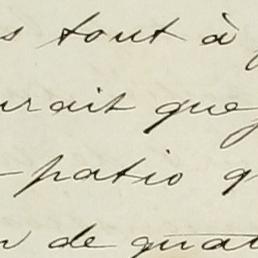 s tout à
rait que
patio q
de quat